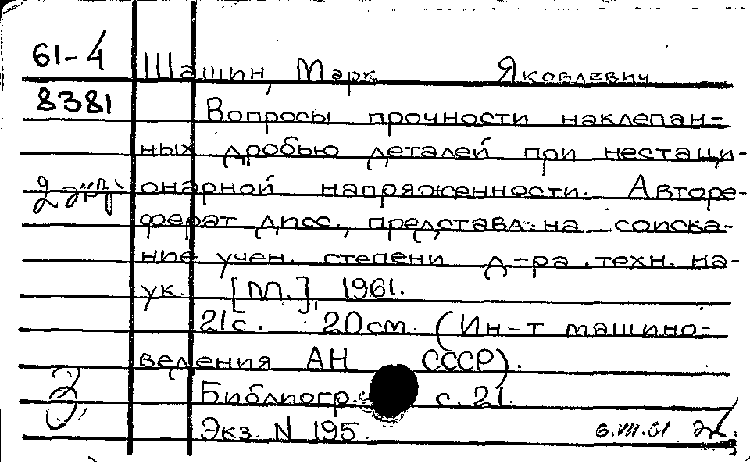 61-4 Шашин, Марк Яковлевич
8381 Вопросы прочности наклепан-
ных дробью деталей при нестаци-
2 экз. онарной напряженности. Авторе-
ферат дисс., представл. на соиска-
ние учен. степени д-ра техн. на-
ук. [М.], 1961.
21с. 20см. (Ин-т машино-
ведения АН СССР).
Библиогр.: с. 21.
Экз. N 195. 6.VII.61